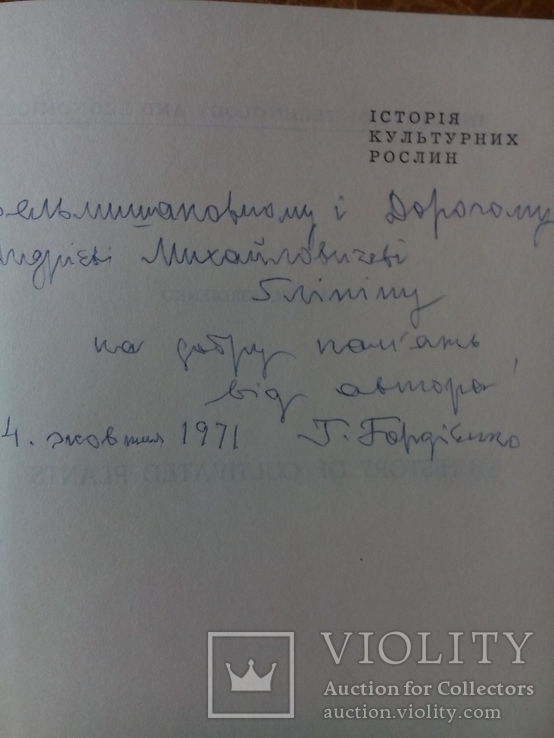 ІСТОРІЯ
КУЛЬТУРНИХ
РОСЛИН
вельмишановному і Дорогому
Андрієві Михайловичеві
на добру пам'ять
від автора
4. жовтня 1971 Г. Гордієнко
VIOLITY
Auction for Collectors
auction.violity.com